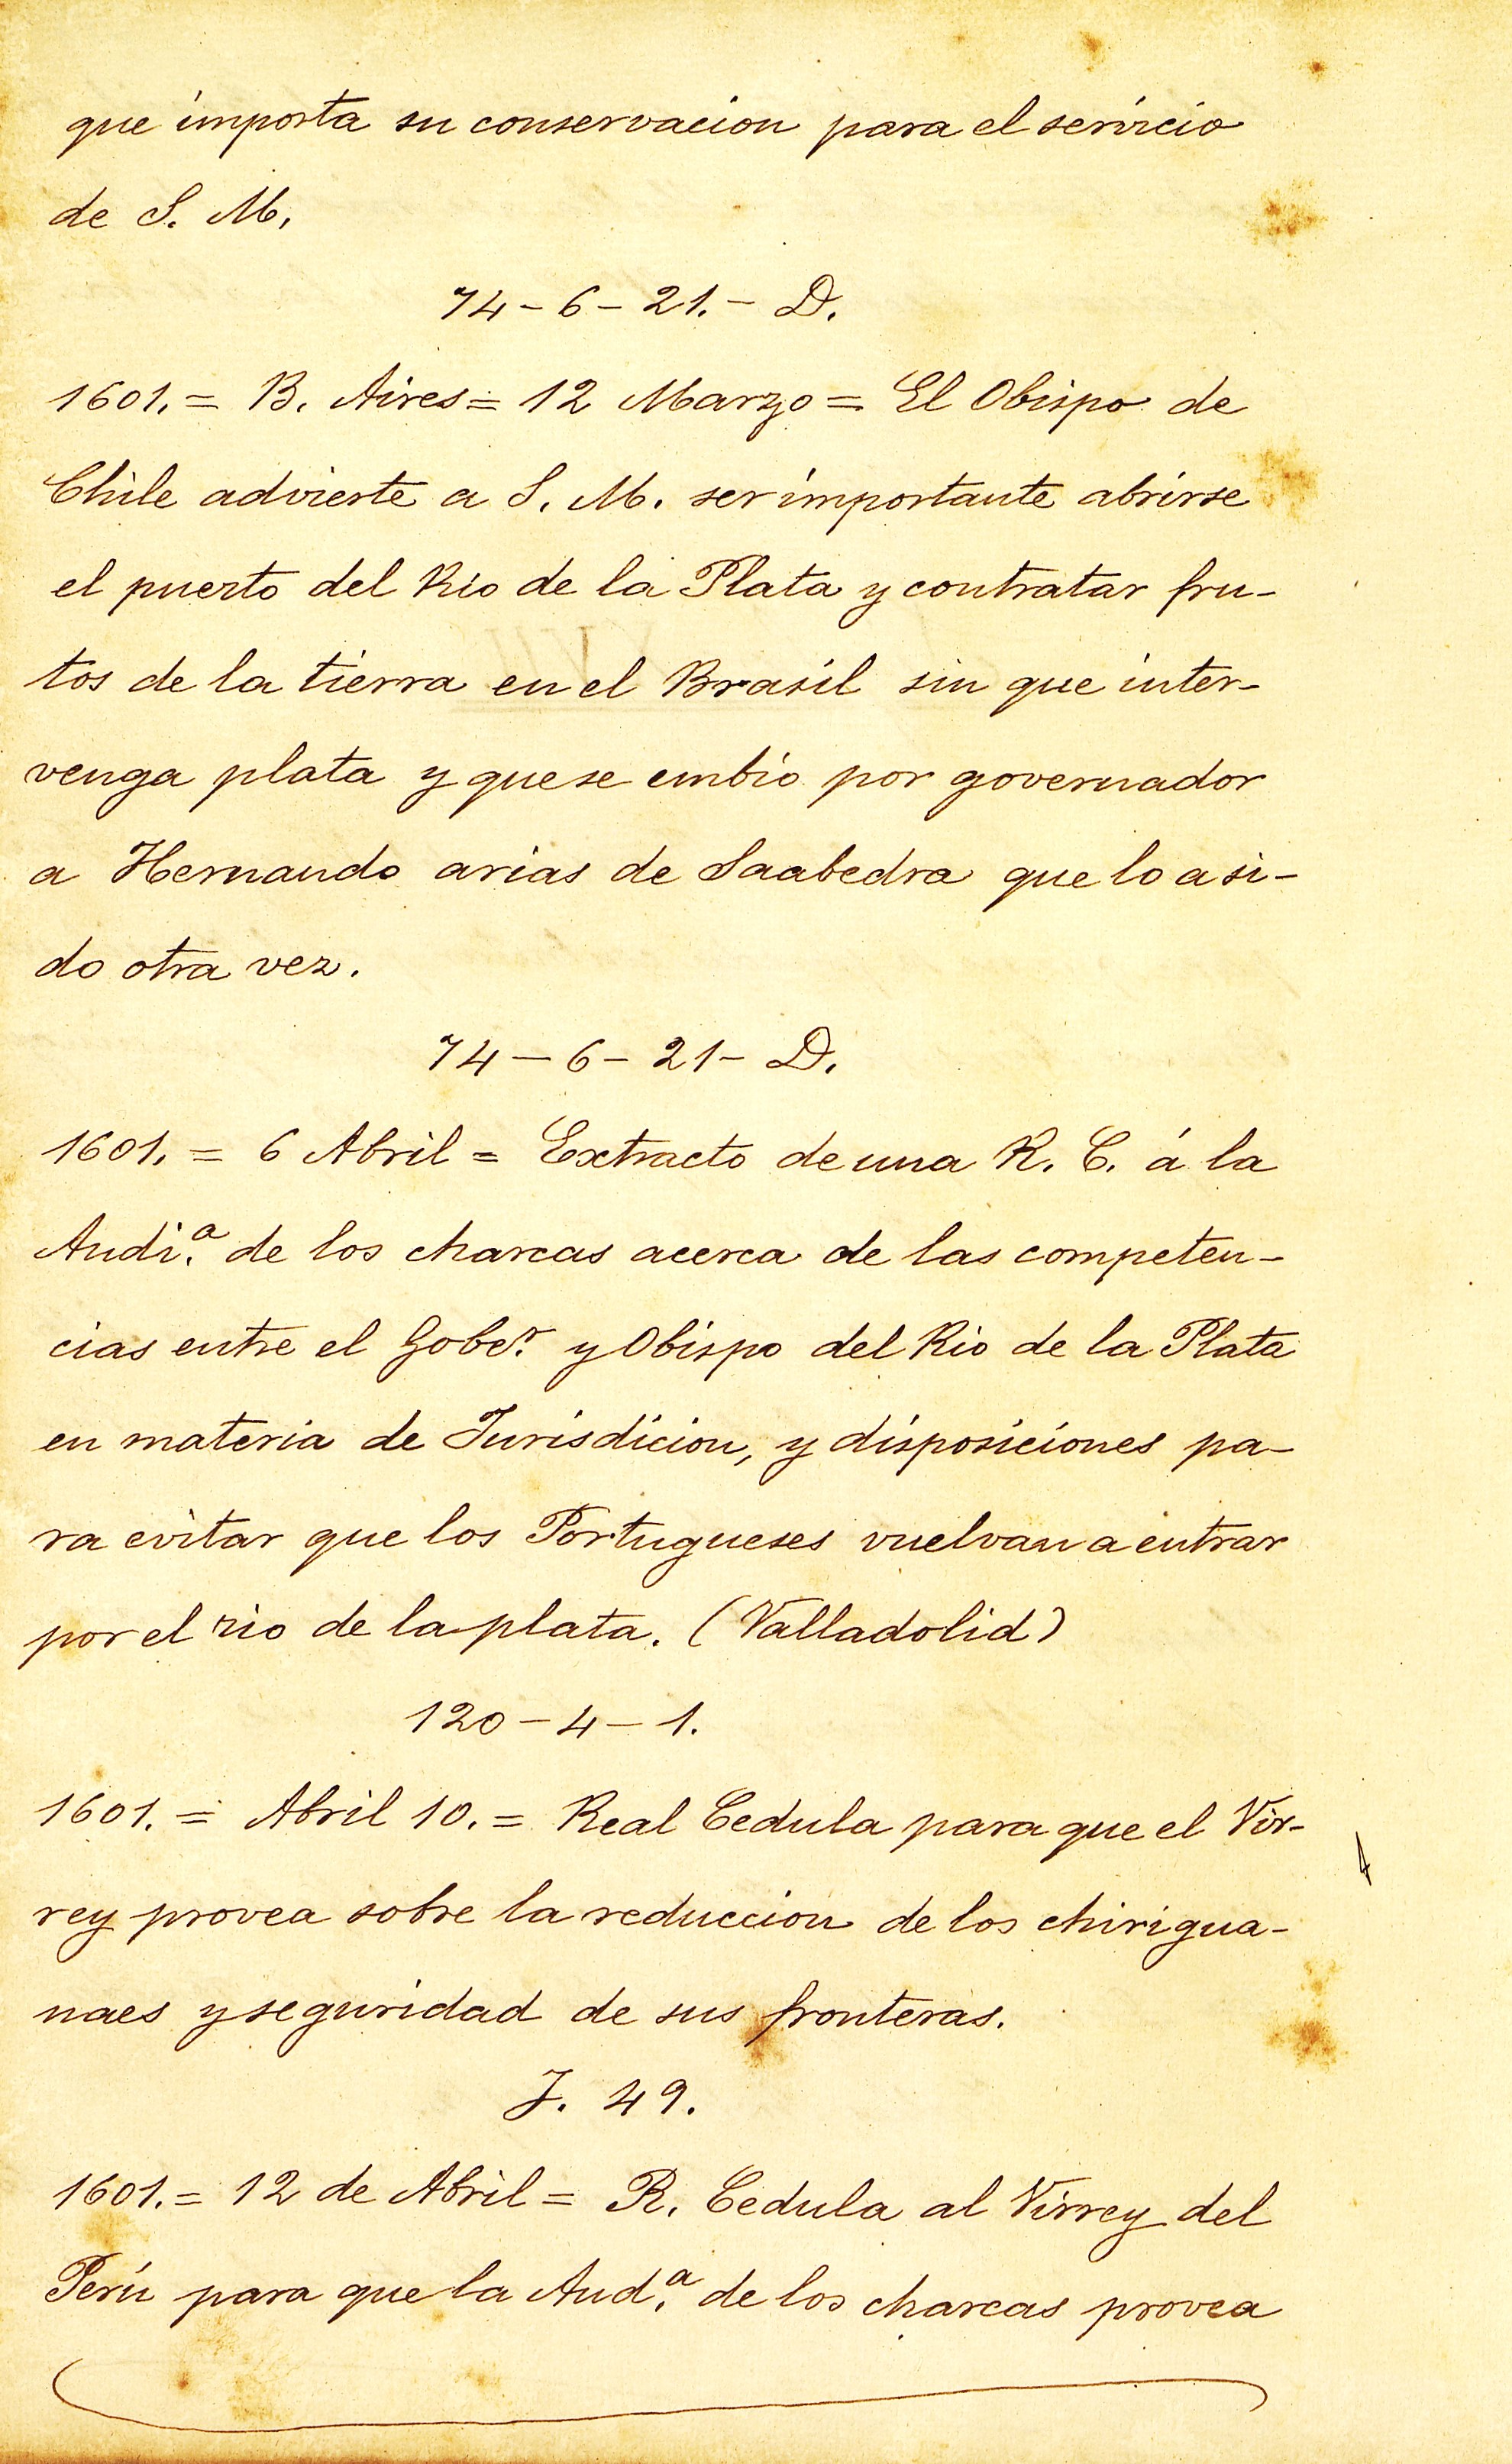 que importa su conservacion para el servicio
de S. M.
74-6-21.- D.
1601. = B. Aires = 12 Marzo = El Obispo de
Chile advierte a S. M. ser importante abrirse
el puerto del Rio de la Plata y contratar fru-
tos de la tierra en el Brasil sin que inter-
venga plata y que se embio por governador
a Hernando arias de Saabedra que lo a si-
do otra vez.
74-6-21- D.
1601. = 6 Abril = Extracto de una R. C. á la
Audi.ª de los charcas acerca de las competen-
cias entre el Gobe.r y Obispo del Rio de la Plata
en materia de Jurisdicion, y disposiciones pa-
ra evitar que los Portugueses vuelvan a entrar
por el rio de la plata. (Valladolid)
120-4-1.
1601. = Abril 10. = Real Cedula para que el Vir-
rey provea sobre la reduccion de los chirigua-
naes y seguridad de sus fronteras.
J. 49.
1601. = 12 de Abril = R. Cedula al Virrey del
Perú para que la Aud.ª de los charcas provea